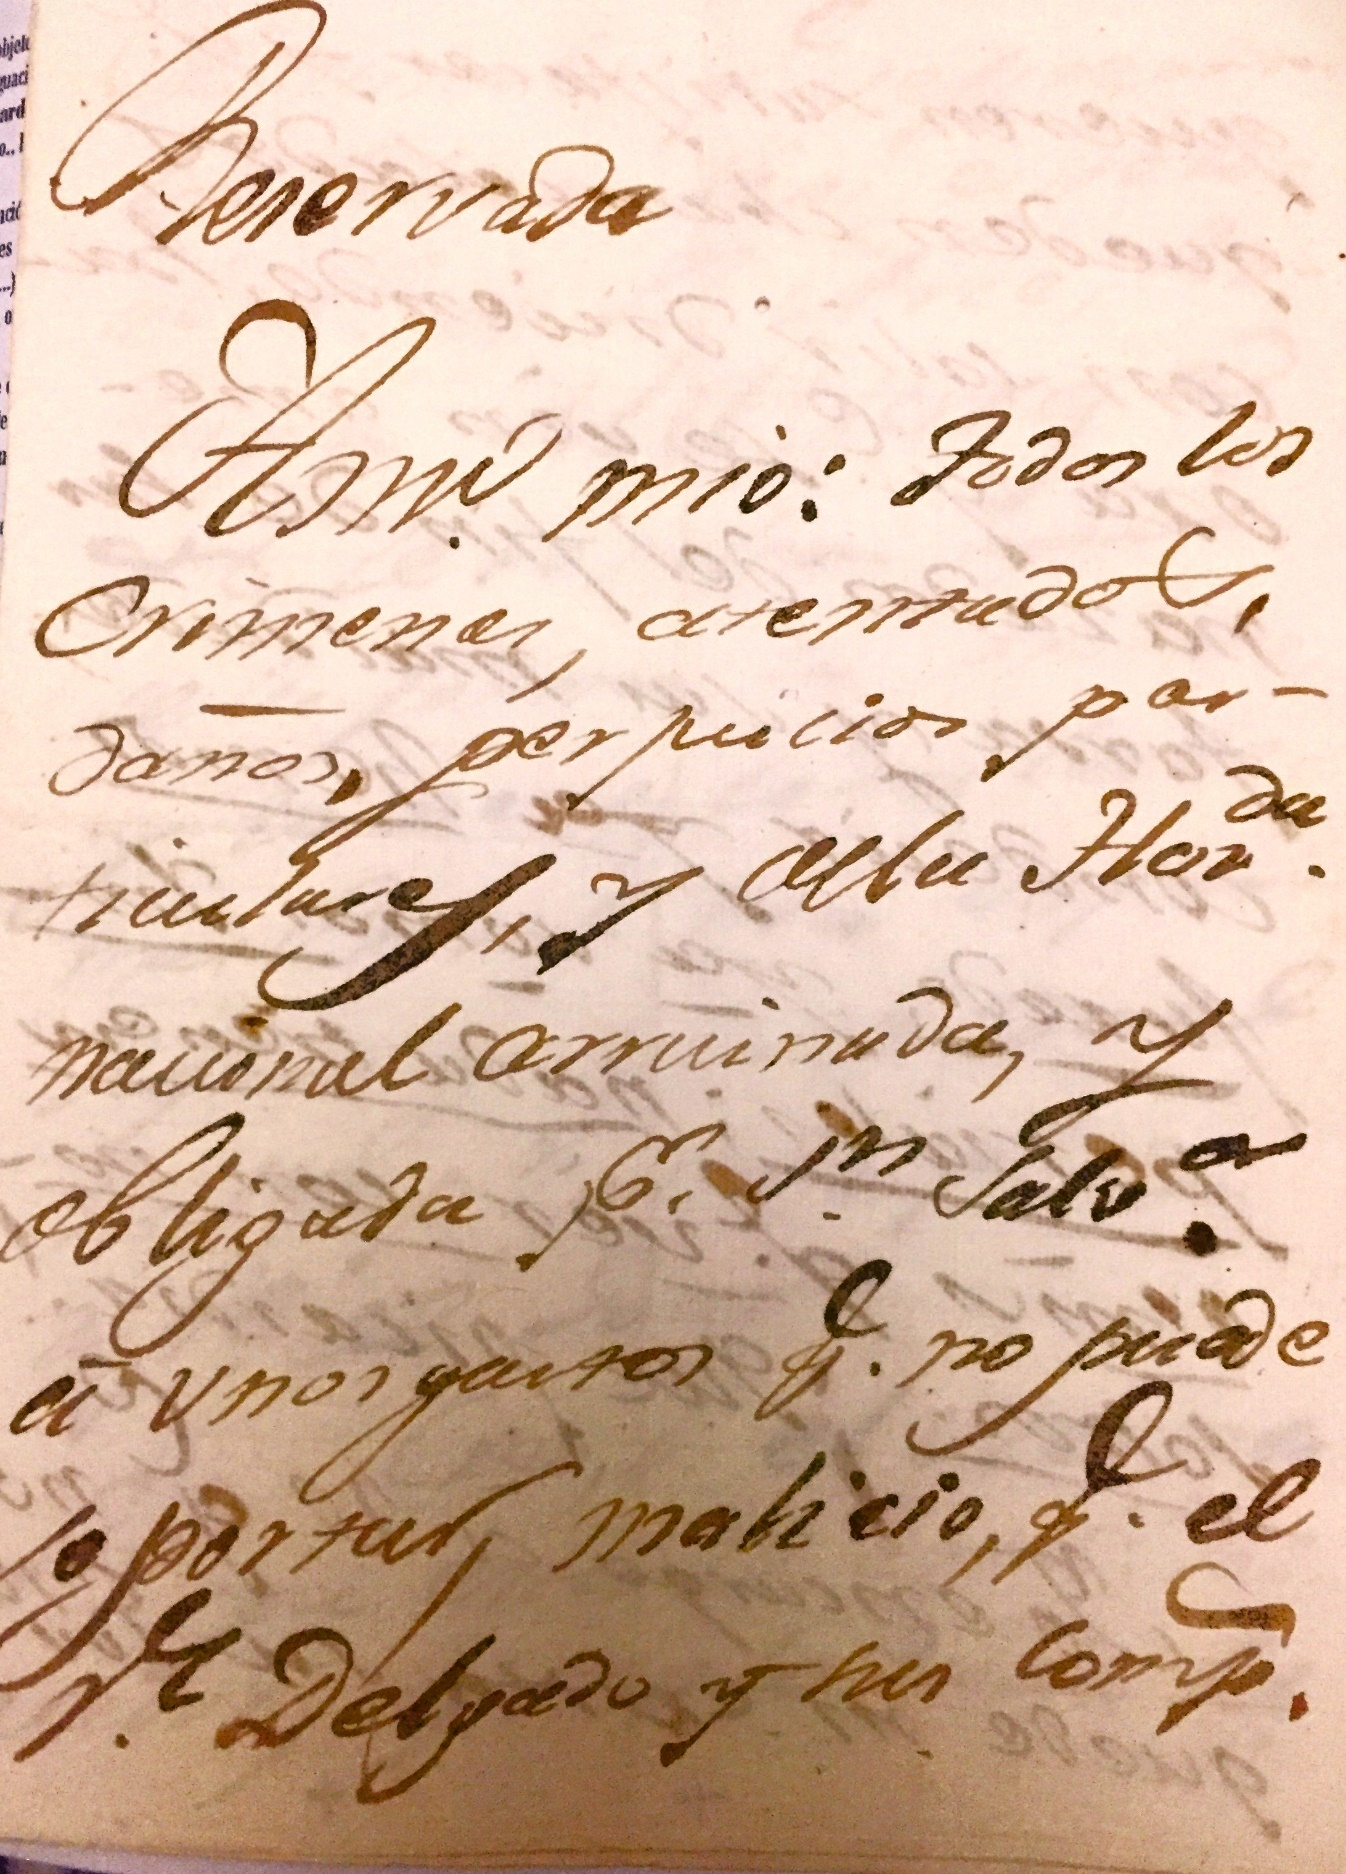 Reservada
Amº mio: todos los
Crimenes, atentados,
daños, perjuicios par-
ticulares, y de la Hazda.
nacional arruinada, y
obligada pr. Sn. Salvr.
á unos gastos q.e no puede
soportar, malicio, q.e el
P.e Delgado y sus comp.